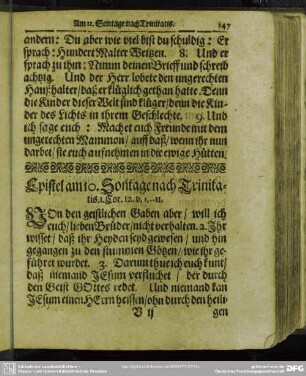 Am 11. Sontage nach Trinitatis. 147
andern: Du aber wie viel bist du schuldig: Er
sprach: Hundert Malter Weitzen. 8. Und er
sprach zu ihm: Nimm deinen Brieff und schreib
achtzig. Und der Herr lobete den ungerechten
Haußhalter / daß er klüglich gethan hatte. Denn
die Kinder dieser Welt sind klüger / denn die Kin-
der des Lichts in ihrem Geschlechte. 9. Und
ich sage euch: Machet euch Freunde mit dem
ungerechten Mammon / auff daß / wenn ihr nun
darbet / sie euch aufnehmen in die ewige Hütten.
Epistel am 10. Sontage nach Trinita-
tis, 1. Cor. 12. v. 1.-11.
VOn den geistlichen Gaben aber / will ich
euch / lieben Brüder / nicht verhalten. 2. Ihr
wisset / daß ihr Heyden seyd gewesen / und hin
gegangen zu den stummen Götzen / wie ihr ge-
führet wurdet. 3. Darum thue ich euch kunt /
daß niemand JEsum verfluchet / der durch
den Geist GOttes redet. Und niemand kan
JEsum einen HErrn heissen / ohn durch den heili-
V ij gen